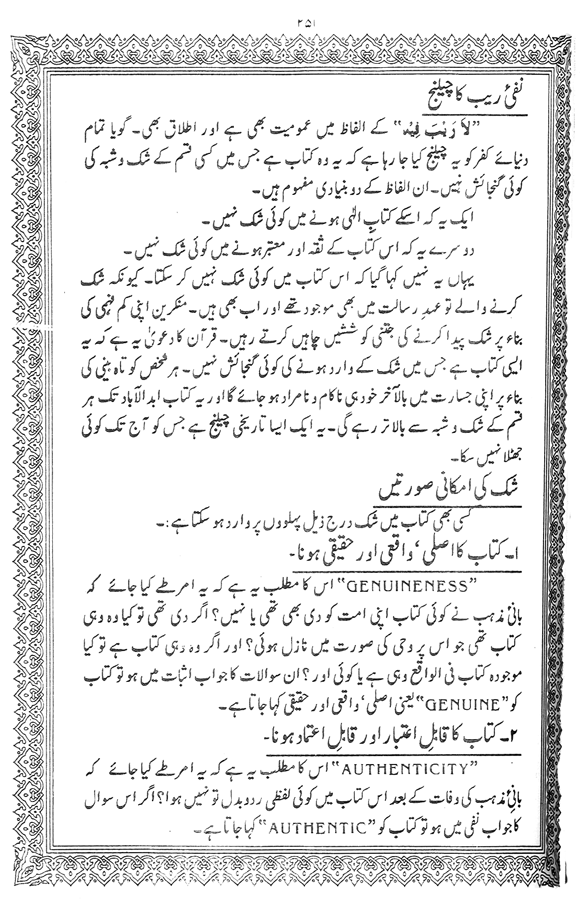 ۲۵۱
نفیٔ ریب کا چیلنج
"لَا رَيْبَ فِيْهِ" کے الفاظ میں عمومیت بھی ہے اور اطلاق بھی۔ گویا تمام
دنیائے کفر کو یہ چیلنج کیا جا رہا ہے کہ یہ وہ کتاب ہے جس میں کسی قسم کے شک و شبہ کی
کوئی گنجائش نہیں۔ ان الفاظ کے دو بنیادی مفہوم ہیں۔
ایک یہ کہ اسکے کتابِ الٰہی ہونے میں کوئی شک نہیں۔
دوسرے یہ کہ اس کتاب کے ثقہ اور معتبر ہونے میں کوئی شک نہیں۔
یہاں یہ نہیں کہا گیا کہ اس کتاب میں کوئی شک نہیں کر سکتا۔ کیونکہ شک
کرنے والے تو عہدِ رسالت میں بھی موجود تھے اور اب بھی ہیں۔ منکرین اپنی کم فہمی کی
بناء پر شک پیدا کرنے کی جتنی کوششیں چاہیں کرتے رہیں۔ قرآن کا دعویٰ یہ ہے کہ یہ
ایسی کتاب ہے جس میں شک کے وارد ہونے کی کوئی گنجائش نہیں۔ ہر شخص کوتاہ بینی کی
بناء پر اپنی جسارت میں بالآخر خود ہی ناکام و نامراد ہو جائے گا اور یہ کتاب ابدالآباد تک ہر
قسم کے شک و شبہ سے بالاتر رہے گی۔ یہ ایک ایسا تاریخی چیلنج ہے جس کو آج تک کوئی
جھٹلا نہیں سکا۔
شک کی امکانی صورتیں
کسی بھی کتاب میں شک درج ذیل پہلووں پر وارد ہو سکتا ہے:۔
۱۔ کتاب کا اصلی، واقعی اور حقیقی ہونا۔
"GENUINENESS" اس کا مطلب یہ ہے کہ یہ امر طے کیا جائے کہ
بانیٔ مذہب نے کوئی کتاب اپنی امت کو دی بھی تھی یا نہیں؟ اگر دی تھی تو کیا وہ وہی
کتاب تھی جو اس پر وحی کی صورت میں نازل ہوئی؟ اور اگر وہ وہی کتاب ہے تو کیا
موجودہ کتاب فی الواقع وہی ہے یا کوئی اور؟ ان سوالات کا جواب اثبات میں ہو تو کتاب
کو "GENUINE" یعنی اصلی، واقعی اور حقیقی کہا جاتا ہے۔
۲۔ کتاب کا قابلِ اعتبار اور قابلِ اعتماد ہونا۔
"AUTHENTICITY" اس کا مطلب یہ ہے کہ یہ امر طے کیا جائے کہ
بانیٔ مذہب کی وفات کے بعد اس کتاب میں کوئی لفظی ردو بدل تو نہیں ہوا؟ اگر اس سوال
کا جواب نفی میں ہو تو کتاب کو "AUTHENTIC" کہا جاتا ہے۔